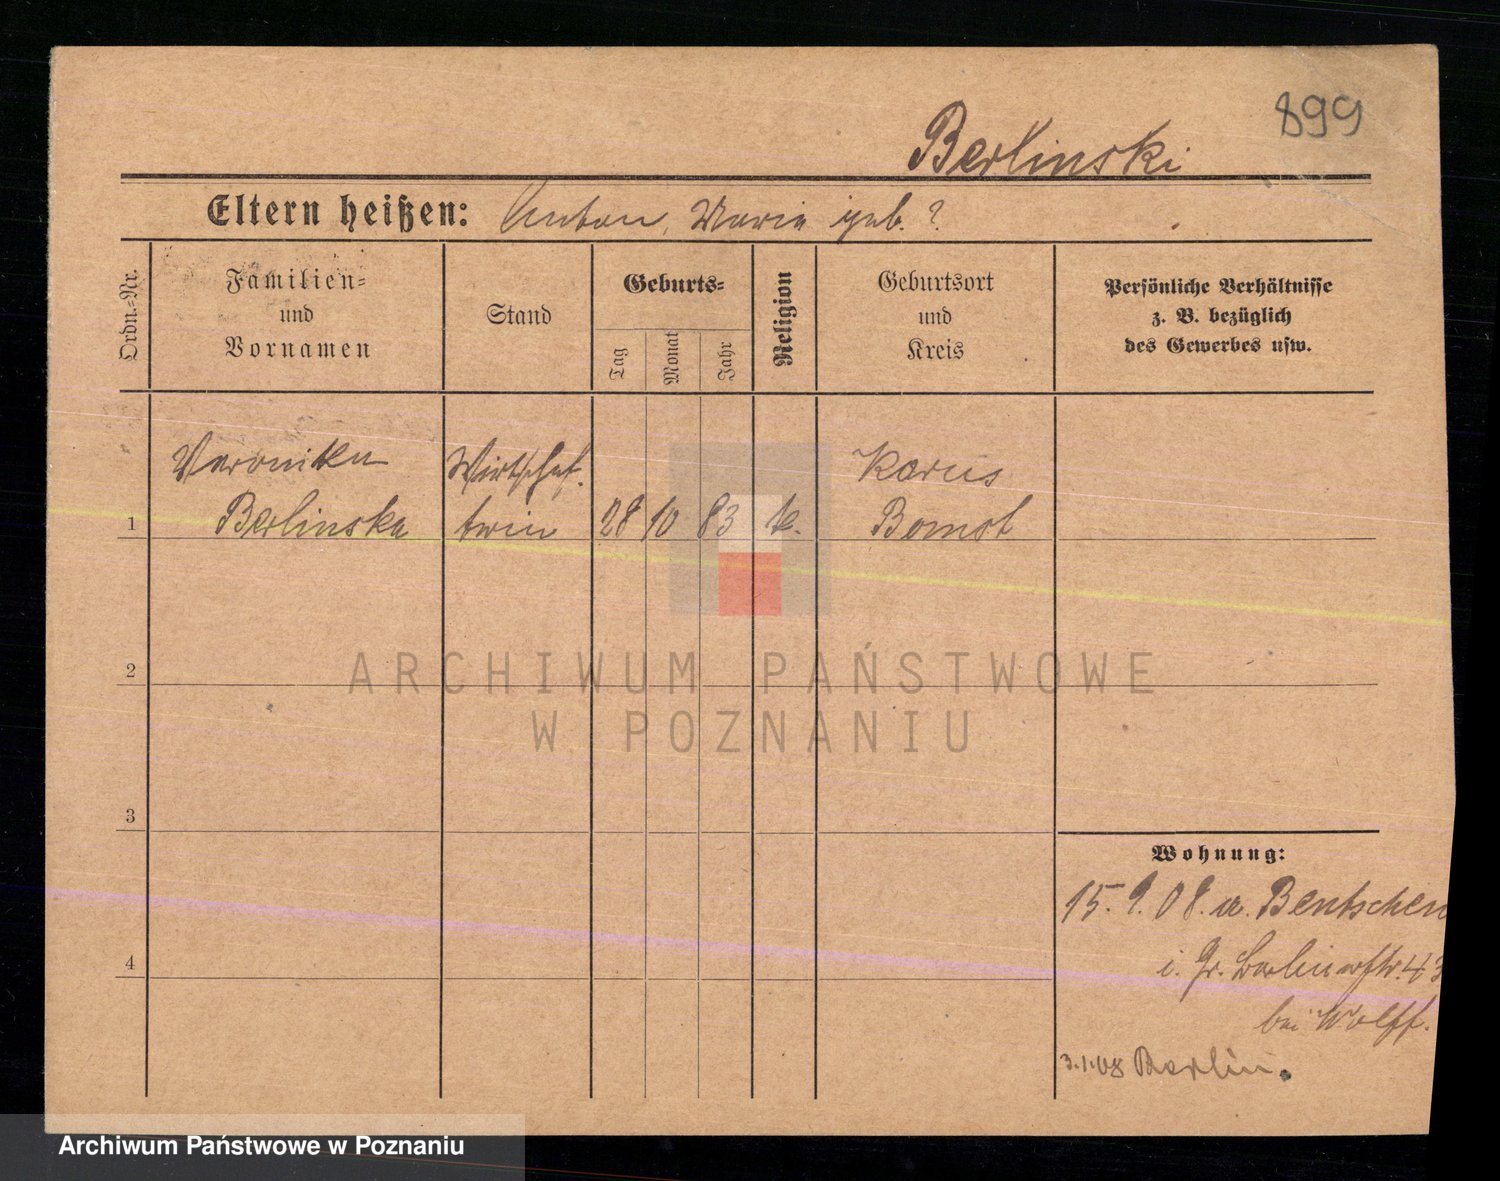 899
Berlinski
Eltern heißen: Anton, Maria geb. ?
Ordn.=Nr.
Familien=
und
Vornamen
Stand
Geburts=
Tag
Monat
Jahr
Religion
Geburtsort
und
Kreis
Persönliche Verhältnisse
z. B. bezüglich
des Gewerbes usw.
1
Veronika
Berlinska
Wirtschaf.
terin
28
10
83
k.
Bomst
2
3
4
Wohnung:
15. 9. 08. a. Bentschen
i. Gr. Berlinerstr. 43
bei Wolff.
3.1.08 Berlin.
ARCHIWUM PAŃSTWOWE
W POZNANIU
Archiwum Państwowe w Poznaniu